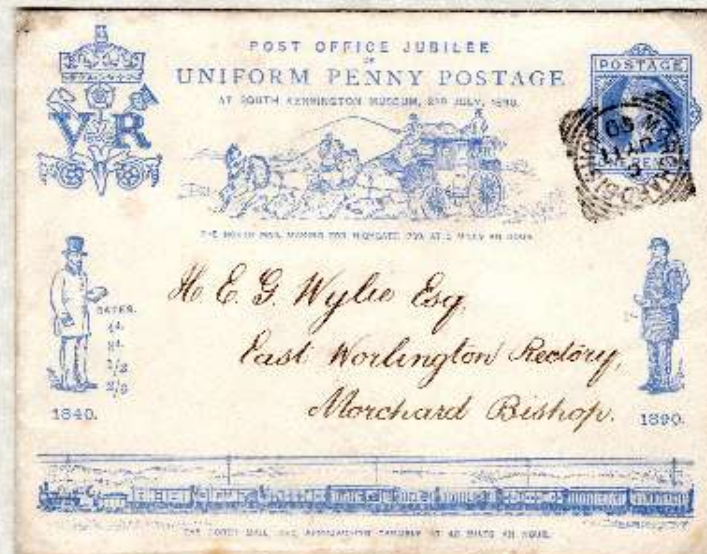 POST OFFICE JUBILEE
OF
UNIFORM PENNY POSTAGE
AT SOUTH KENSINGTON MUSEUM, 2ND JULY, 1890.
V R
POSTAGE
THE NORTH MAIL MAKING FOR HIGHGATE AT 8 MILES AN HOUR
H. E. G. Wylie Esq.
East Worlington Rectory,
Morchard Bishop.
RATES.
4d.
8d.
1/2
2/6
1840.
1890.
THE NORTH MAIL APPROACHING CARLISLE AT 48 MILES AN HOUR.